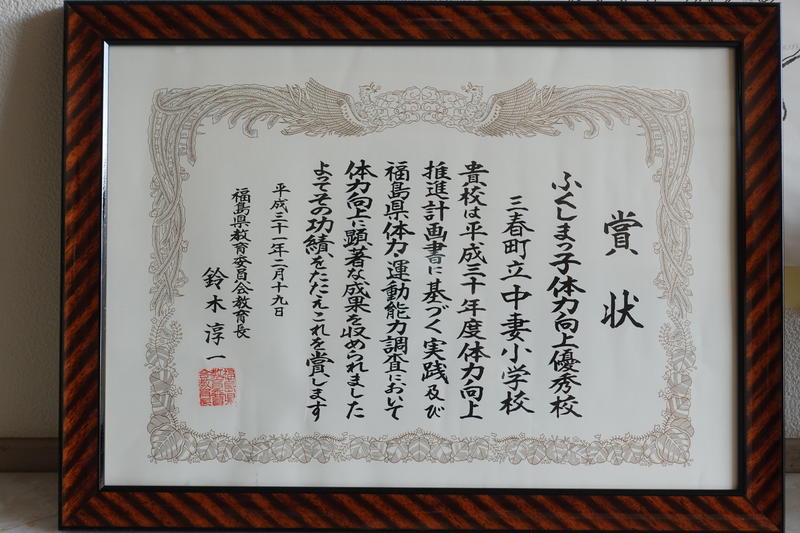 賞状
ふくしまっ子体力向上優秀校
三春町立中妻小学校
貴校は平成三十年度体力向上
推進計画書に基づく実践及び
福島県体力・運動能力調査において
体力向上に顕著な成果を収められました
よってその功績をたたえこれを賞します
平成三十一年二月十九日
福島県教育委員会教育長
鈴木淳一
福島県
教育委員
会教育長